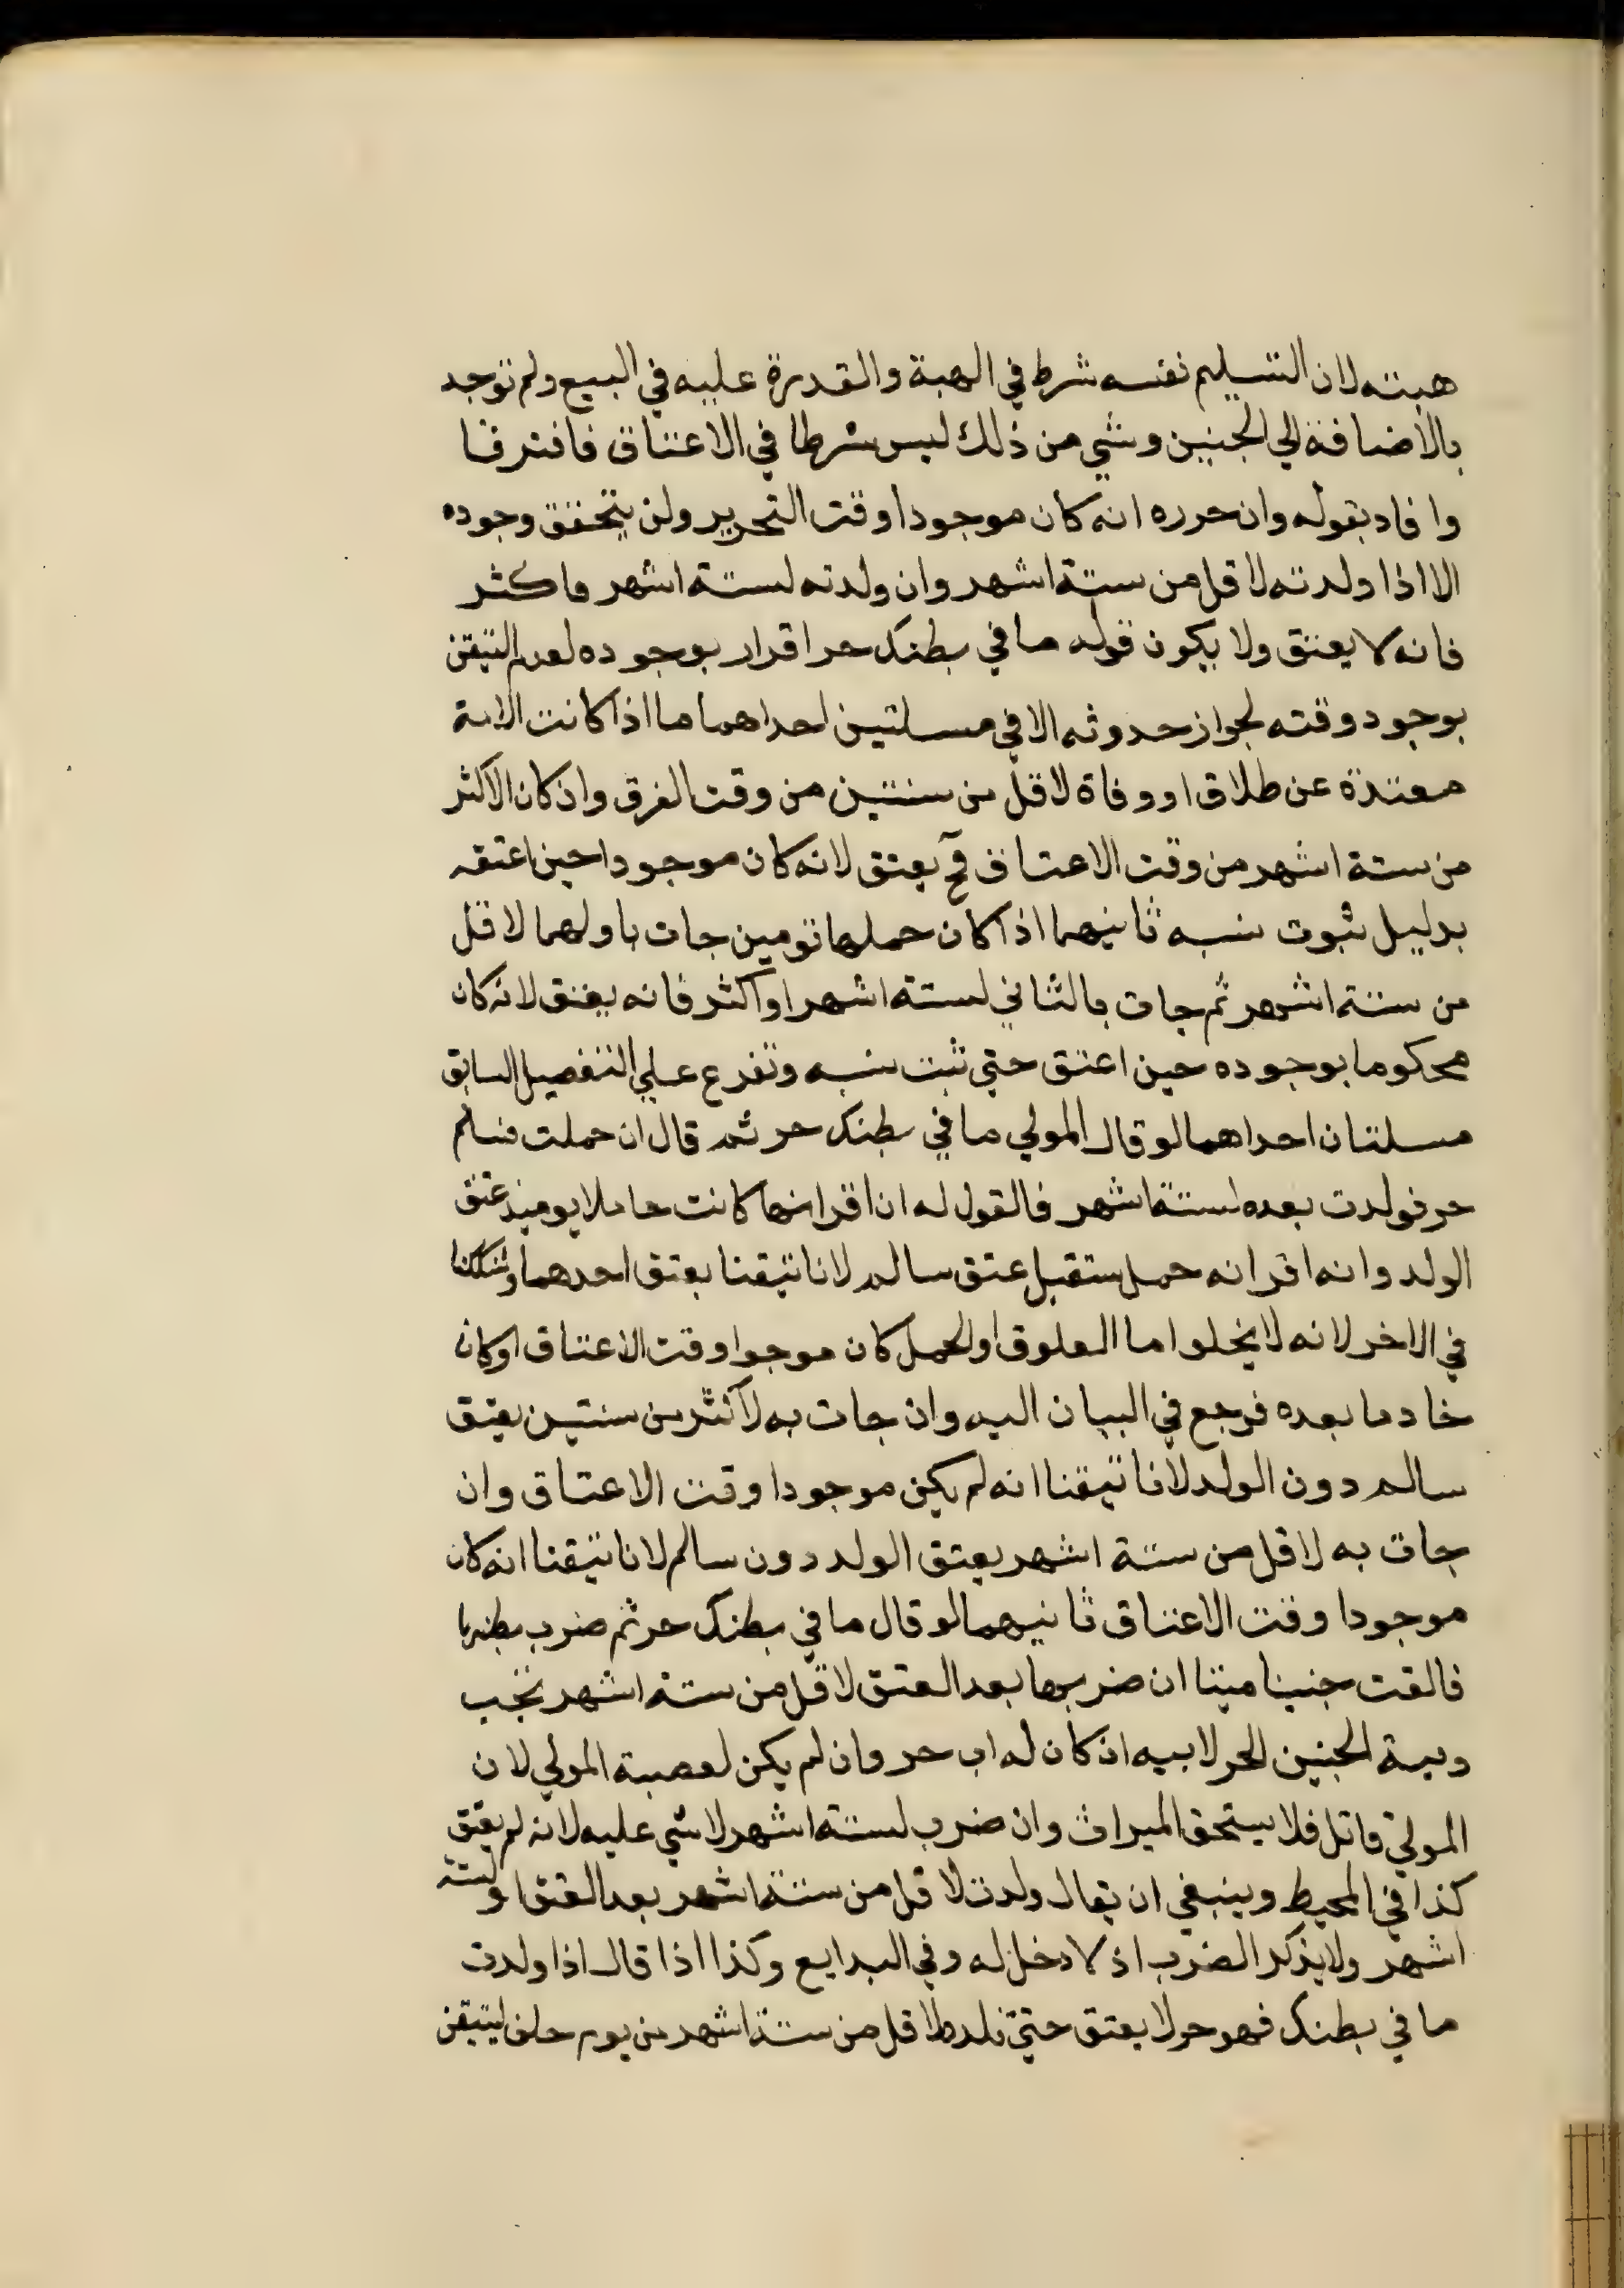 هبته لان التسليم نفسه شرط في الهبة والقدرة عليه في البيع ولم توجد
بالاضافة الي الجنين وشي من ذلك ليس شرطا في الاعتاق فافترقا
وافاد بقوله وان حرره انه كان موجودا وقت التحرير ولن يتحقق وجوده
الا اذا ولدته لاقل من ستة اشهر وان ولدته لستة اشهر فاكثر
فانه لا يعتق ولا يكون قوله ما في بطنك حر اقرار بوجوده لعدم التيقن
بوجود وقته لجواز حدوثه الا في مسلتين احداهما ما اذا كانت الامة
معتدة عن طلاق او وفاة لاقل من سنتين من وقت الفرق وان كان لاكثر
من ستة اشهر من وقت الاعتاق فح يعتق لانه كان موجودا حين اعتقه
بدليل ثبوت نسبه ثانيهما اذا كان حملها تومين جات باولهما لاقل
من ستة اشهر ثم جات بالثاني لستة اشهر او اكثر فانه يعتق لانه كان
محكوما بوجوده حين اعتق حتي ثبت نسبه وتفرع علي التفصيل السابق
مسلتان احداهما لو قال المولي ما في بطنك حر ثم قال ان حملت فسالم
حر فولدت بعده لستة اشهر فالقول له ان اقر انها كانت حاملا يوميذ عتق
الولد وانه اقر انه حمل مستقبل عتق سالم لانا تيقنا بعتق احدهما وشككنا
في الاخر لانه لا يخلوا ما العلوق او الحمل كان موجوا وقت الاعتاق او كان
خادما بعده فرجع في البيان اليه وان جات به لاكثر من سنتين يعتق
سالم دون الولد لانا تيقنا انه لم يكن موجودا وقت الاعتاق وان
جات به لاقل من ستة اشهر يعتق الولد دون سالم لانا تيقنا انه كان
موجودا وقت الاعتاق ثانيهما لو قال ما في بطنك حر ثم ضرب بطنها
فالقت جنينا ميتا ان ضربها بعد العتق لاقل من ستة اشهر تجب
دية الجنين الحر لابيه ان كان له اب حر وان لم يكن لعصبة المولي لان
المولي قاتل فلا يستحق الميراث وان ضرب لستة اشهر لا شي عليه لانه لم يعتق
كذا في المحيط وينبغي ان يقال ولدت لاقل من ستة اشهر بعد العتق او لستة
اشهر ولا يذكر الضرب اذ لا دخل له وفي البدايع وكذا اذا قال اذا ولدت
ما في بطنك فهو حر لا يعتق حتي تلد لاقل من ستة اشهر من يوم حلف ليتيقن